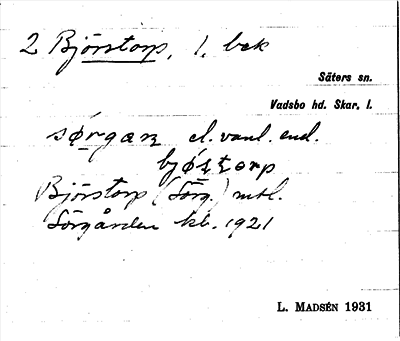 2 Björstorp, 1. bek
Säters sn.
Vadsbo hd. Skar. l.
sørgan el. vanl. end.
bjøṣtorp
Björstorp (Sörg.) mtl.
Sörgården kb. 1921
L. MADSÉN 1931